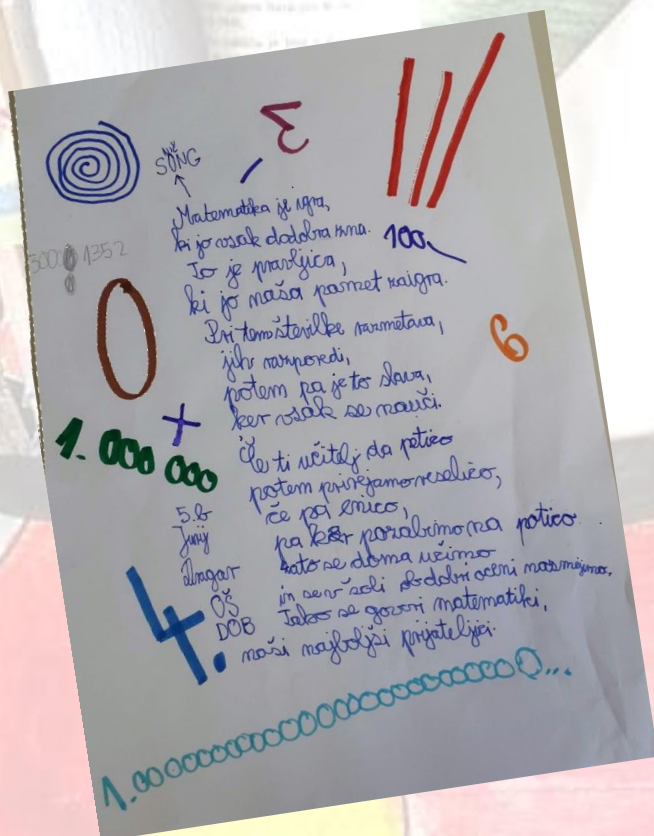 NIŽ
SONG
3
100
300:8 1352
Matematika je igra,
ki jo vsak dodobra zna.
To je pravljica,
ki jo naša pamet zaigra.
Pri tem številke razmetava,
jih razporedi,
potem pa je to slava,
ker vsak se nauči.
0
6
+
1.000 000
Če ti učitelj da petico
potem prirejamo veselico,
če pa enico,
pa kar pozabimo na potico
zato se doma učimo
in se v šoli ob dobri oceni nasmejimo.
Tako se govori matematiki,
naši najboljši prijateljici.
5.b
Jurij
Ungar
OŠ
DOB
4.
1.000000000000000000000000...